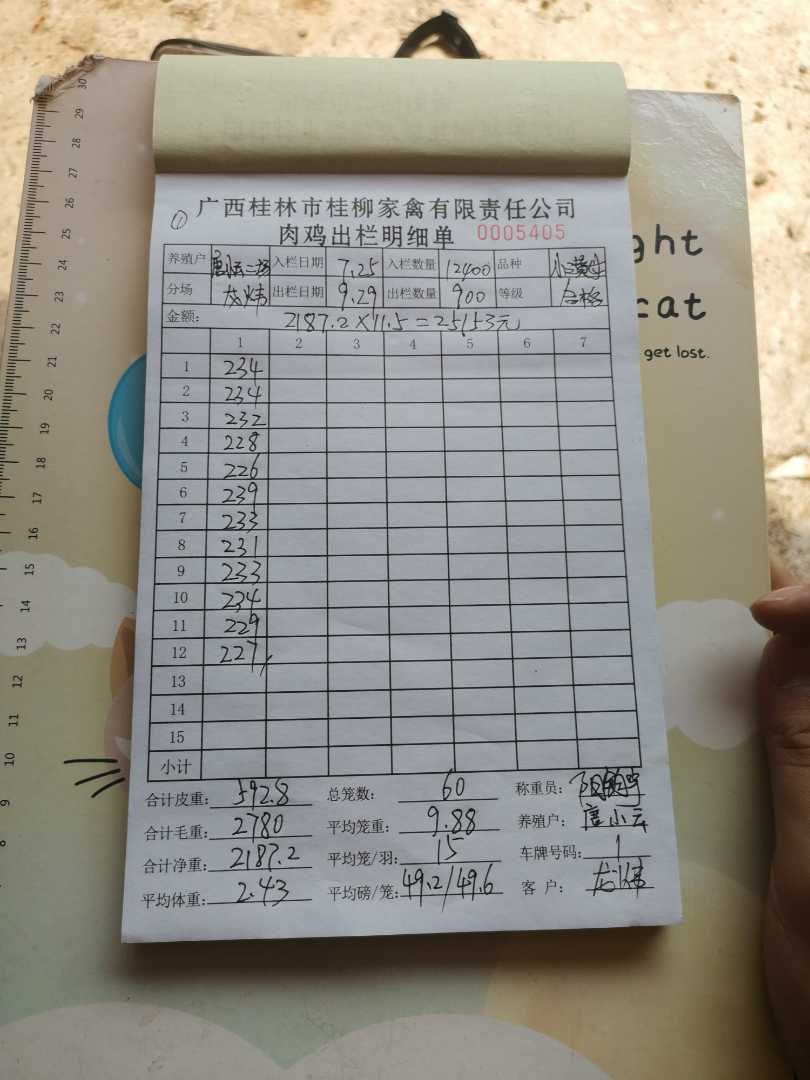 ① 广西桂林市桂柳家禽有限责任公司
肉鸡出栏明细单 0005405
养殖户 唐小云二场 入栏日期 7.25 入栏数量 12400 品种
分场 龙炜 出栏日期 9.29 出栏数量 900 等级 合格
金额: 2187.2×11.5=25153元
1 2 3 4 5 6 7
1 234
2 234
3 232
4 228
5 226
6 239
7 233
8 231
9 233
10 234
11 229
12 227
13
14
15
小计
合计皮重: 592.8 总笼数: 60 称重员:
合计毛重: 2780 平均笼重: 9.88 养殖户: 唐小云
合计净重: 2187.2 平均笼/羽: 15 车牌号码: 1
平均体重: 2.43 平均磅/笼: 49.2/49.6 客户: 龙炜
ght
cat
get lost.
30
29
28
27
26
25
24
23
22
21
20
19
18
17
16
15
14
13
12
11
10
9
8